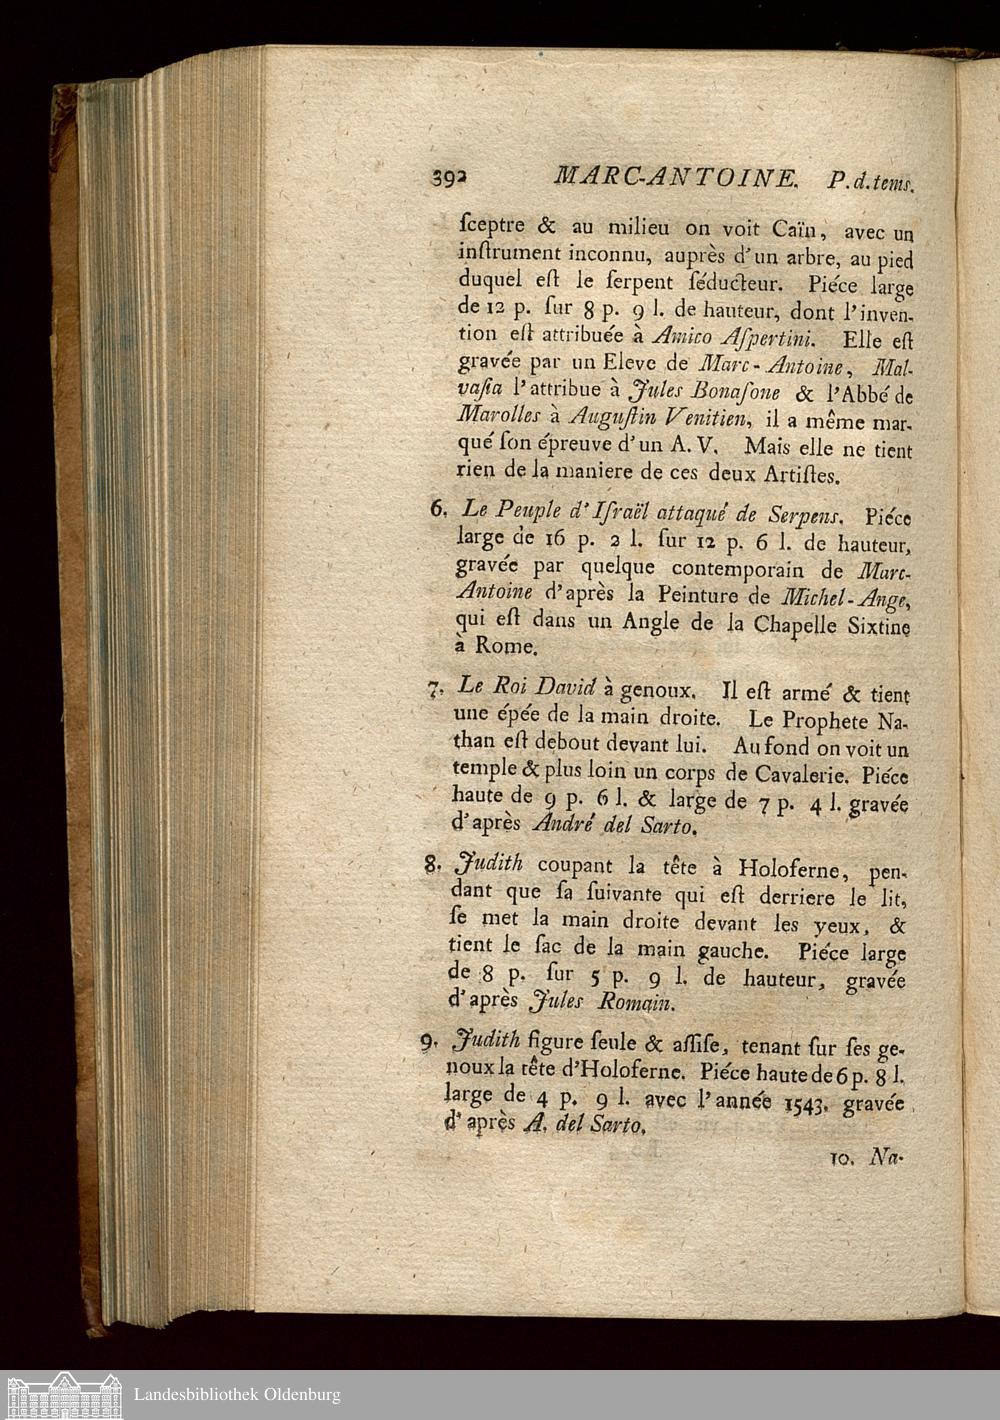 392 MARC-ANTOINE. P. d. tems.
ſceptre & au milieu on voit Caïn, avec un
inſtrument inconnu, auprès d'un arbre, au pied
duquel eſt le ſerpent ſéducteur. Piéce large
de 12 p. ſur 8 p. 9 l. de hauteur, dont l'inven-
tion eſt attribuée à Amico Aſpertini. Elle eſt
gravée par un Eleve de Marc-Antoine, Mal-
vaſia l'attribue à Jules Bonaſone & l'Abbé de
Marolles à Auguſtin Venitien, il a même mar-
qué ſon épreuve d'un A. V. Mais elle ne tient
rien de la maniere de ces deux Artiſtes.
6. Le Peuple d'Iſraël attaqué de Serpens. Piéce
large de 16 p. 2 l. ſur 12 p. 6 l. de hauteur,
gravée par quelque contemporain de Marc-
Antoine d'après la Peinture de Michel-Ange,
qui eſt dans un Angle de la Chapelle Sixtine
à Rome.
7. Le Roi David à genoux. Il eſt armé & tient
une épée de la main droite. Le Prophete Na-
than eſt debout devant lui. Au fond on voit un
temple & plus loin un corps de Cavalerie. Piéce
haute de 9 p. 6 l. & large de 7 p. 4 l. gravée
d'après André del Sarto.
8. Judith coupant la tête à Holoferne, pen-
dant que ſa ſuivante qui eſt derriere le lit,
ſe met la main droite devant les yeux, &
tient le ſac de la main gauche. Piéce large
de 8 p. ſur 5 p. 9 l. de hauteur, gravée
d'après Jules Romain.
9. Judith figure ſeule & aſſiſe, tenant ſur ſes ge-
noux la tête d'Holoferne. Piéce haute de 6 p. 8 l.
large de 4 p. 9 l. avec l'année 1543. gravée
d'après A. del Sarto.
10. Na-
Landesbibliothek Oldenburg